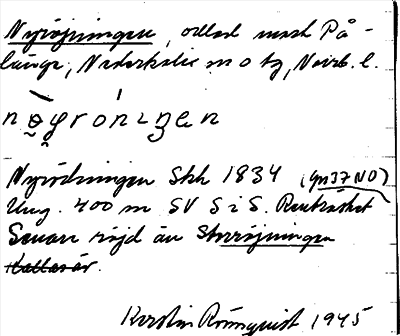 Nyröjningen, odlad mark På-
länge, Nederkalix m o tg, Norrb. l.
nøyrònızen
Nyrödningen Skk 1834 (gn37NO)
Ung. 400 m SV S i S. Renträsket
Senare röjd än Storröjningen
Kallas är.
Kerstin Rönnquist 1945